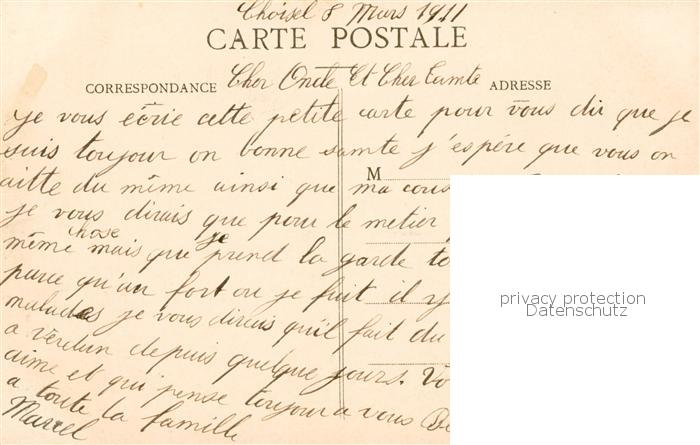 Choisel 8 Mars 1911
CARTE POSTALE
CORRESPONDANCE Cher Oncle Et Cher Tamte ADRESSE
je vous écrie cette petite carte pour vous dir que je
suis toujour on bonne samte j'espére que vous on
aitte du même ainsi que ma cous
M
je vous dirais que pour le metier
chose je
même mais que prend la garde to
parce qu'au fort ou je fuit il y
malades je vous dirais qu'il fait du
a Verdun depuis quelque jours. Vo
aime et qui pense toujour a vous
a toute la famille
Marcel
privacy protection
Datenschutz